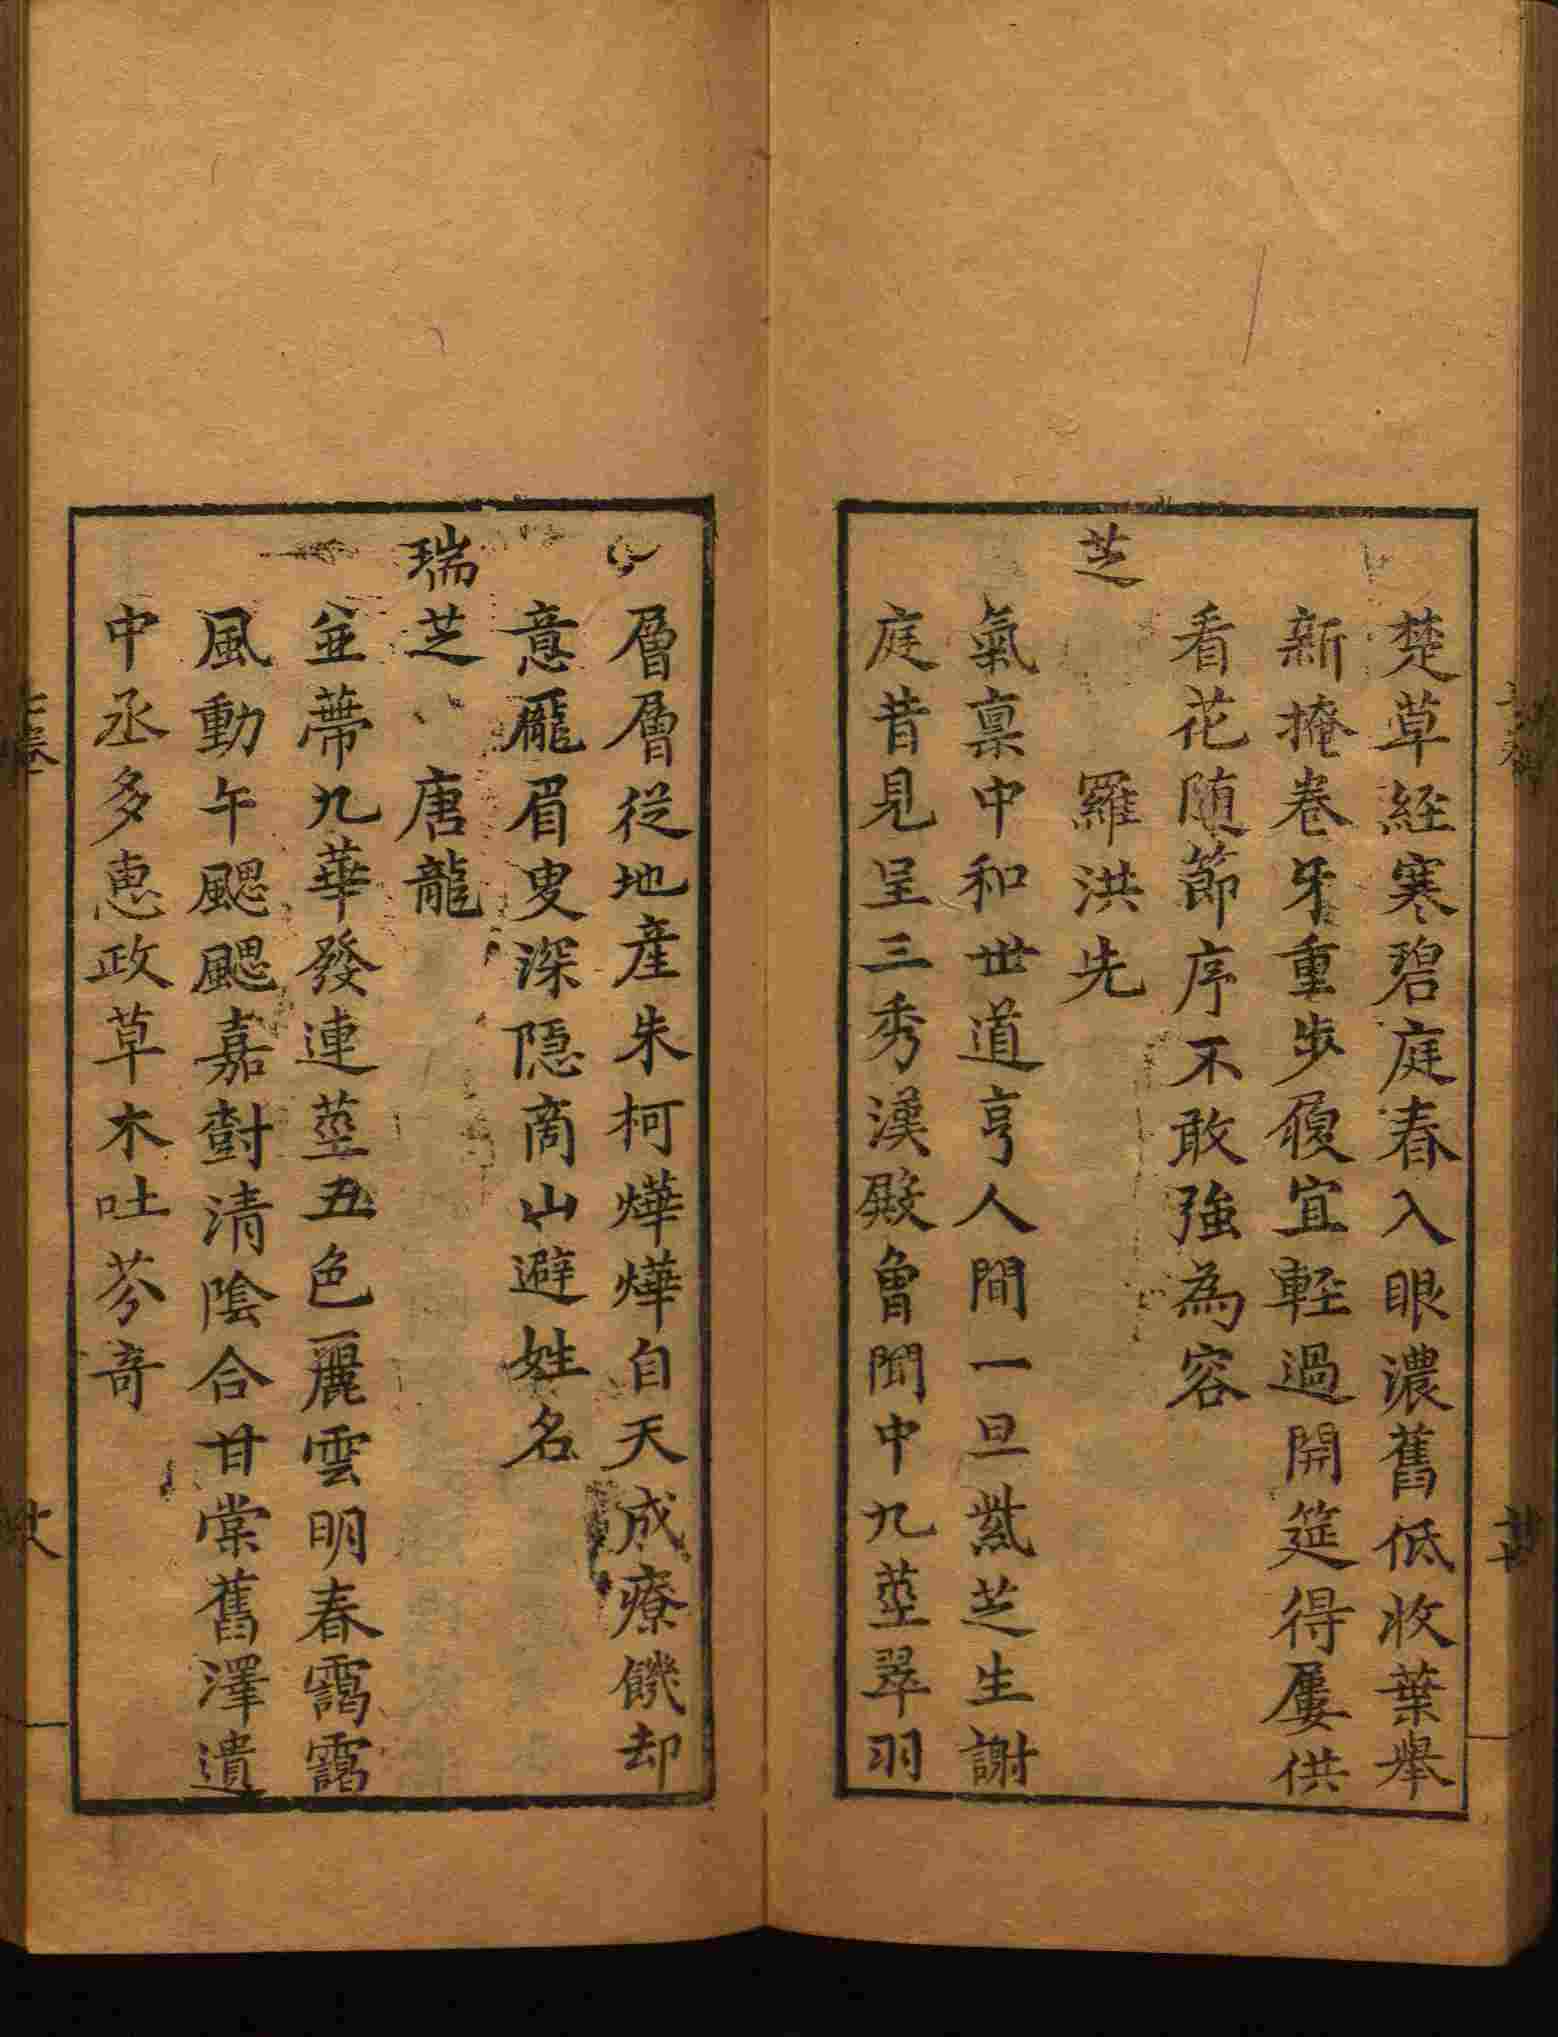 楚草経寒碧庭春入眼濃舊低收葉舉
新掩卷牙重步屐宜輕過開筵得屢供
看花随節序不敢強為容
芝
羅洪先
氣禀中和世道亨人間一旦紫芝生謝
庭昔見呈三秀漢殿曾聞中九莖翠羽
層層從地産朱柯燁燁自天成療饑却
意龐眉叟深隱商山避姓名
瑞芝　唐龍
並蔕九華發連莖五色麗雲明春靄靄
風動午颸颸嘉樹清陰合甘棠舊澤遺
中丞多惠政草木吐芬奇